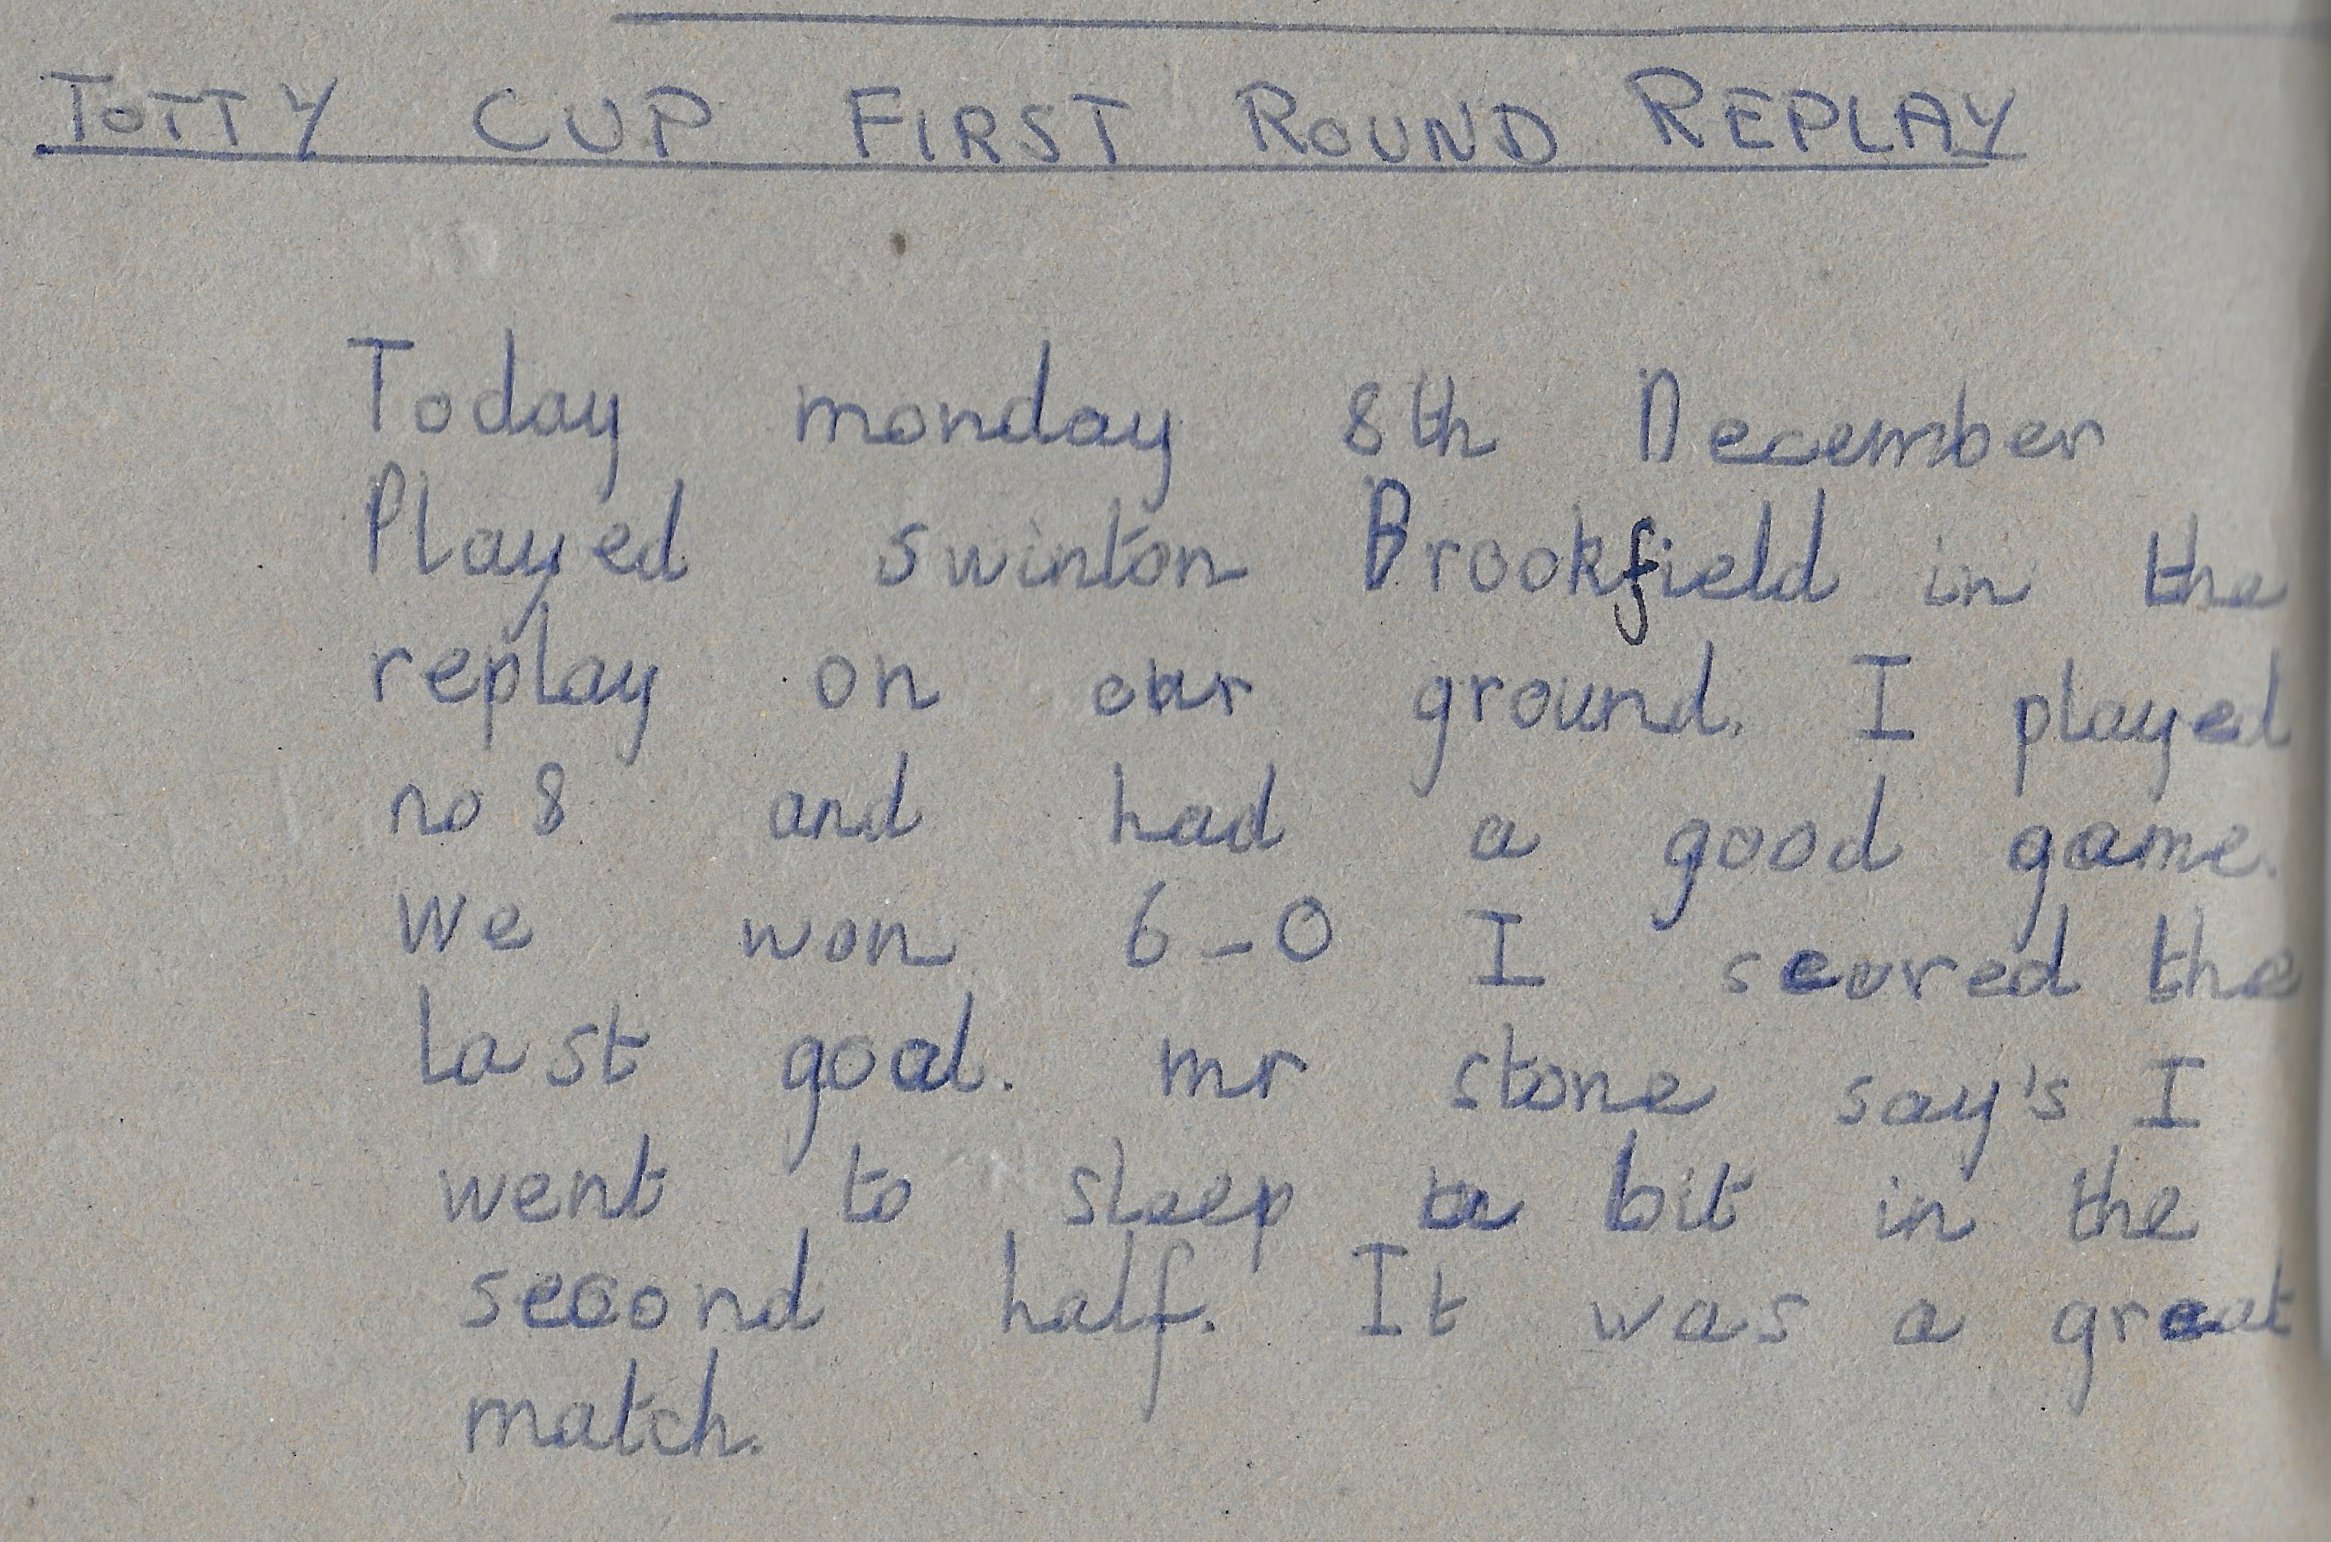 TOTTY CUP FIRST ROUND REPLAY
Today monday 8th December
Played swinton Brookfield in the
replay on our ground. I played
no 8 and had a good game.
We won 6-0 I scored the
last goal. mr stone say's I
went to sleep a bit in the
second half. It was a great
match.